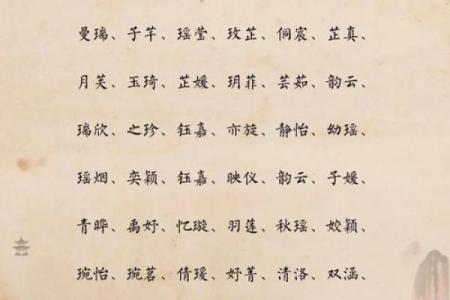 曼瑞、子芊、瑶莹、玫芷、侗宸、芷真、
月芙、玉琦、芷媛、玥菲、芸茹、韵云、
瑞欣、之珍、钰嘉、亦旋、静怡、幼瑶、
瑶烟、奕颖、钰嘉、映仪、韵云、子媛、
青晔、禹妤、忆璇、羽莲、秋瑶、姣颖、
琬怡、琬茗、倩瑗、妤菁、清洛、双涵、